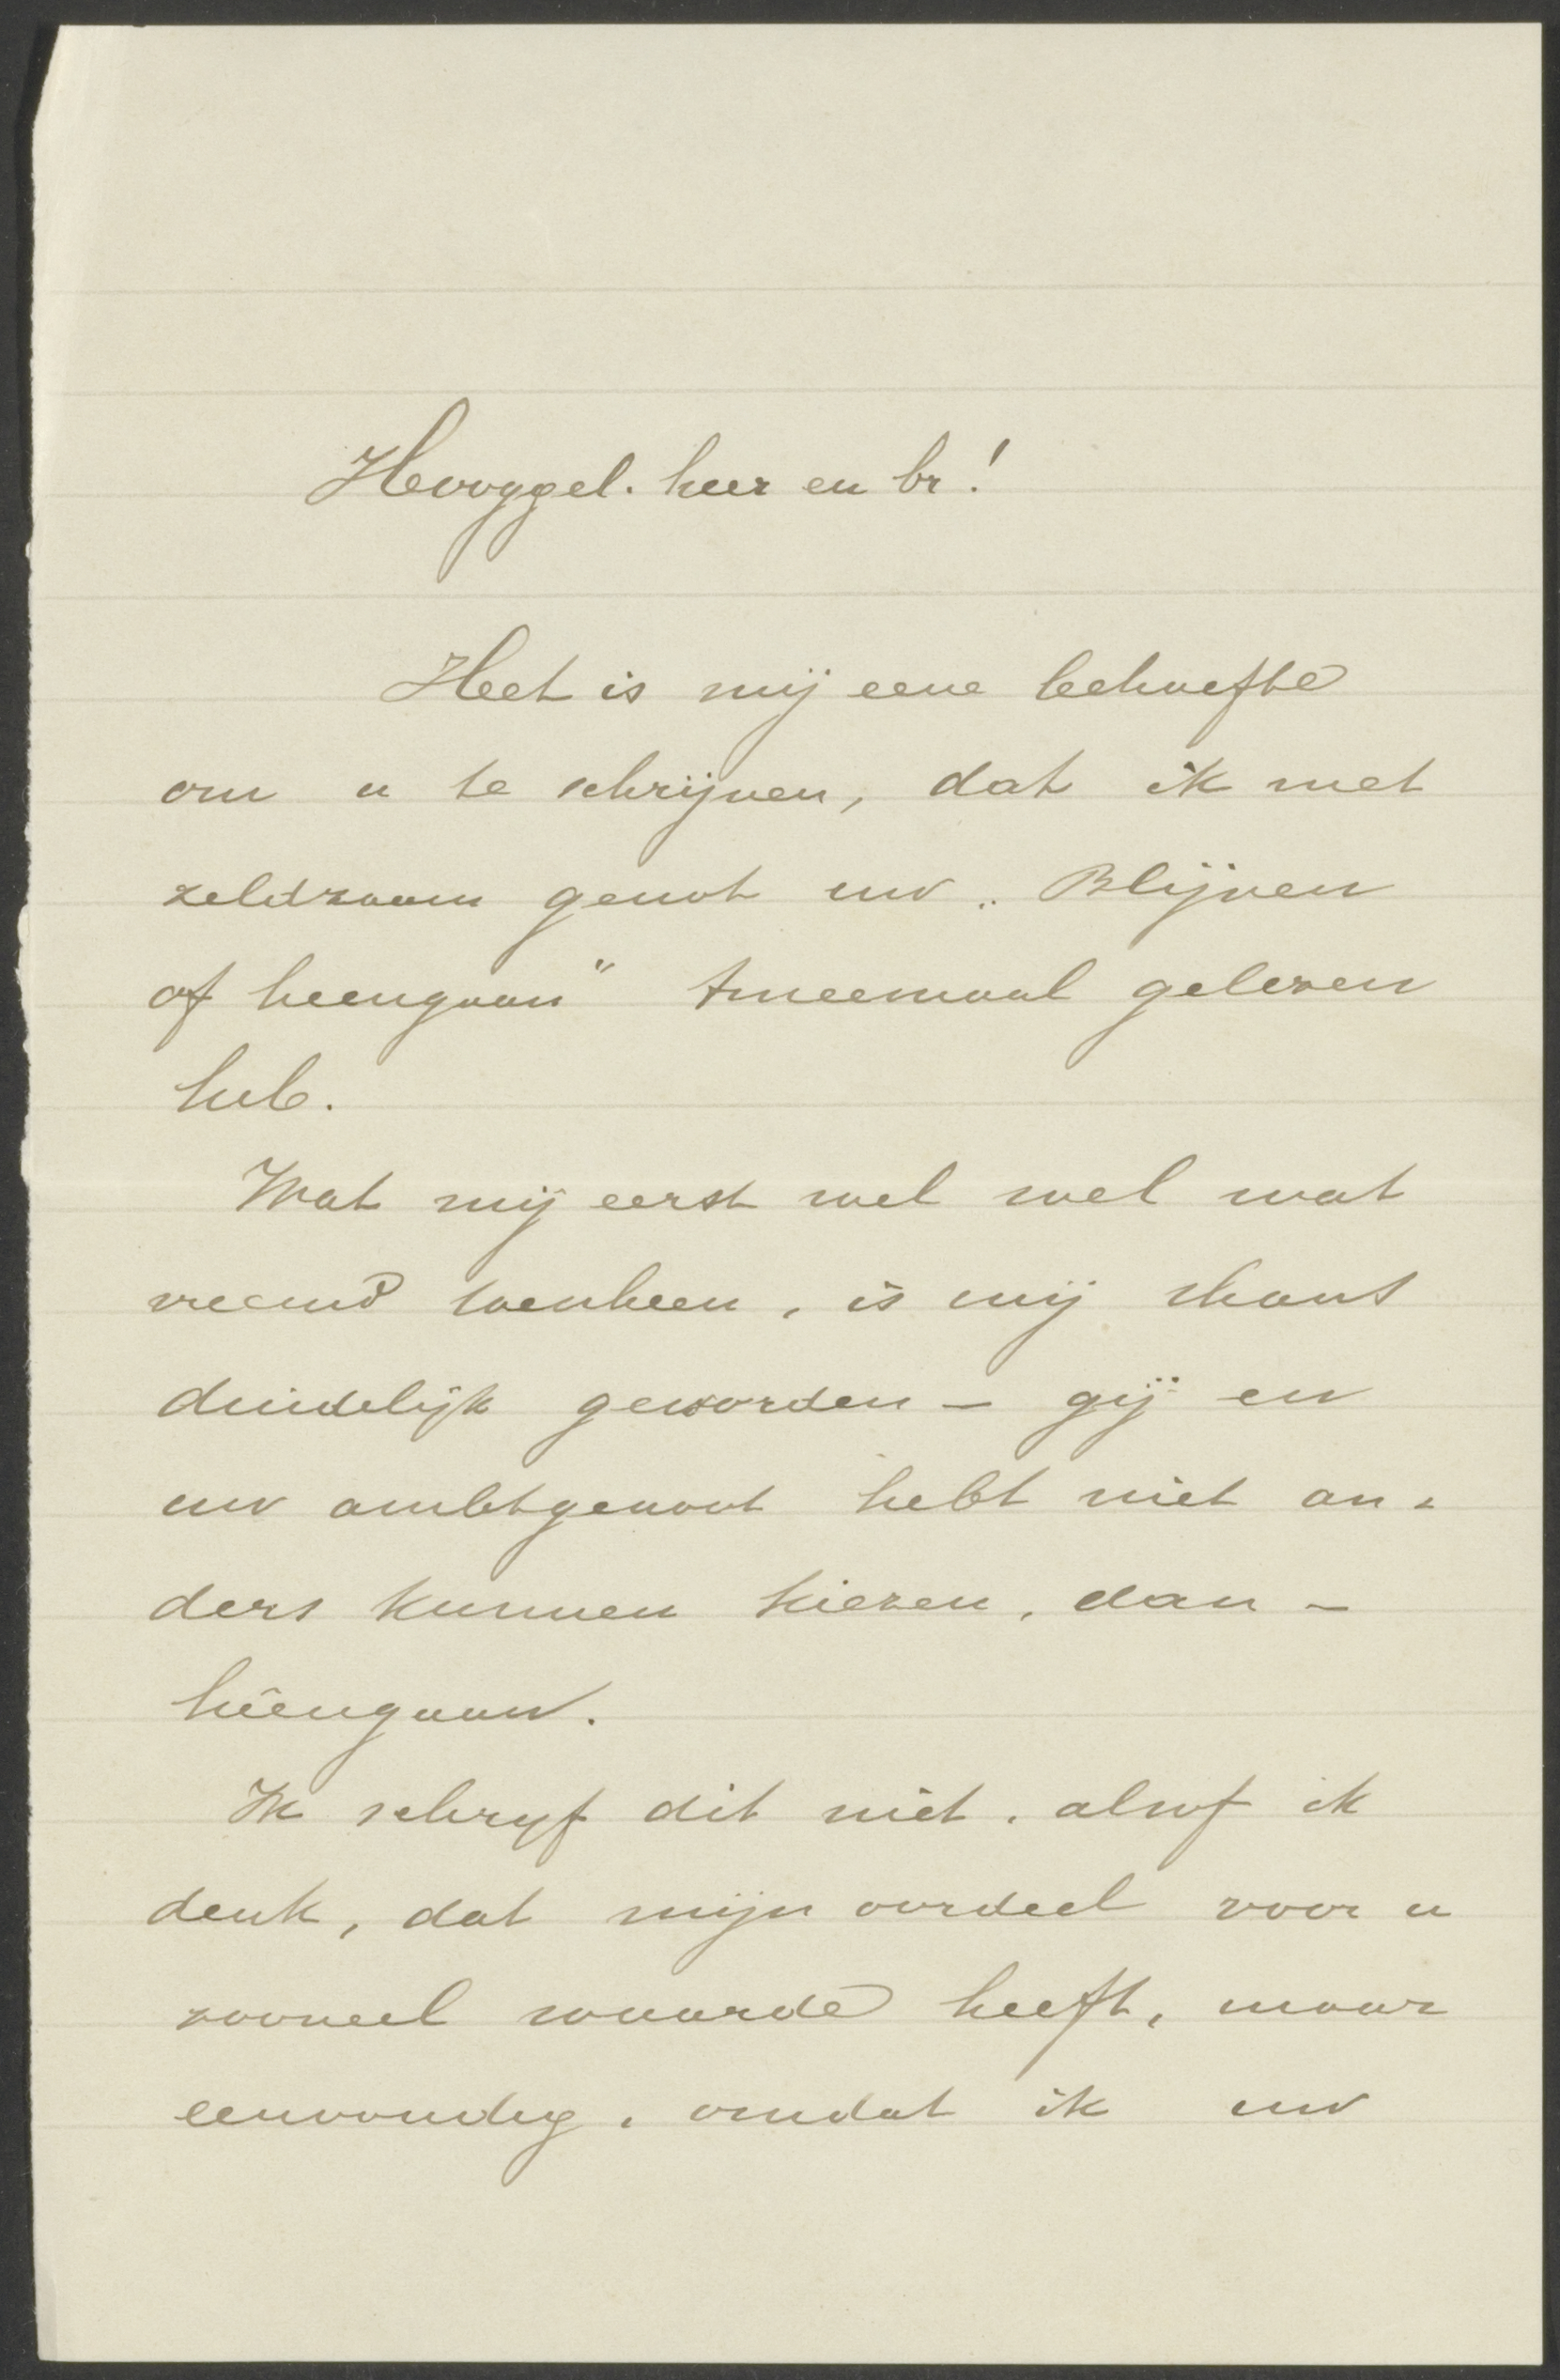 Hooggel. heer en br!
Het is mij eene behoefte
om u te schrijven, dat ik met
zeldzaam genot uw „Blijven
of heengaan" tweemaal gelezen
heb.
Wat mij eerst wel wel wat
vreemd toescheen, is mij thans
duidelijk geworden - gij en
uw ambtgenoot hebt niet an-
ders kunnen kiezen, dan -
héengaan.
Ik schryf dit niet, alsof ik
denk, dat mijn oordeel voor u
zooveel waarde heeft, maar
eenvoudig, omdat ik uw